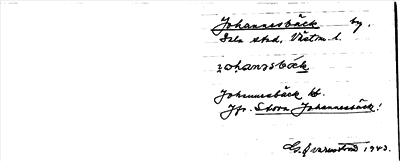 Johannesbäck by.
Sala stad, Västm. l.
johansbäck
Johannesbäck ht.
Jfr. Stora Johannesbäck!
1943.